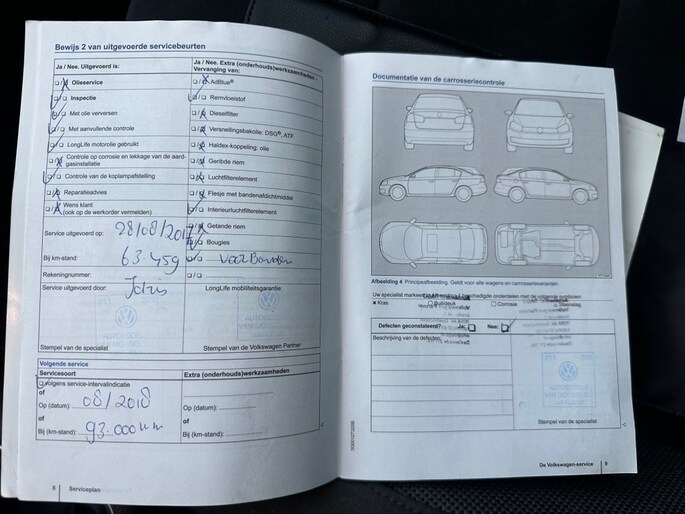 Bewijs 2 van uitgevoerde servicebeurten
Ja / Nee. Uitgevoerd is:
Olieservice
Inspectie
Met olie verversen
Met aanvullende controle
LongLife motorolie gebruikt
Controle op corrosie en lekkage van de aard-
gasinstallatie
Controle van de koplampafstelling
Reparatieadvies
Wens klant
(ook op de werkorder vermelden)
Service uitgevoerd op: 28/08/2017
Bij km-stand: 63.459
Rekeningnummer:
Service uitgevoerd door:
Idris
Stempel van de specialist
Ja / Nee. Extra (onderhouds)werkzaamheden -
Vervanging van:
AdBlue®
Remvloeistof
Dieselfilter
Versnellingsbakolie: DSG®, ATF
Haldex-koppeling: olie
Geribde riem
Luchtfilterelement
Flesje met bandenafdichtmiddel
Interieurluchtfilterelement
Getande riem
Bougies
LongLife mobiliteitsgarantie:
Stempel van de Volkswagen Partner
Volgende service
Servicesoort
Volgens service-intervalindicatie
of
Op (datum): 08/2018
of
Bij (km-stand): 93.000 km
Extra (onderhouds)werkzaamheden
Op (datum):
of
Bij (km-stand):
Serviceplan
Documentatie van de carrosseriecontrole
Afbeelding 4 Principeafbeelding. Geldt voor alle wagens en carrosserievarianten.
Kras
Corrosie
Steenslag
Defecten geconstateerd? Ja: Nee:
Beschrijving van de defecten:
Stempel van de specialist
De Volkswagen-service 9